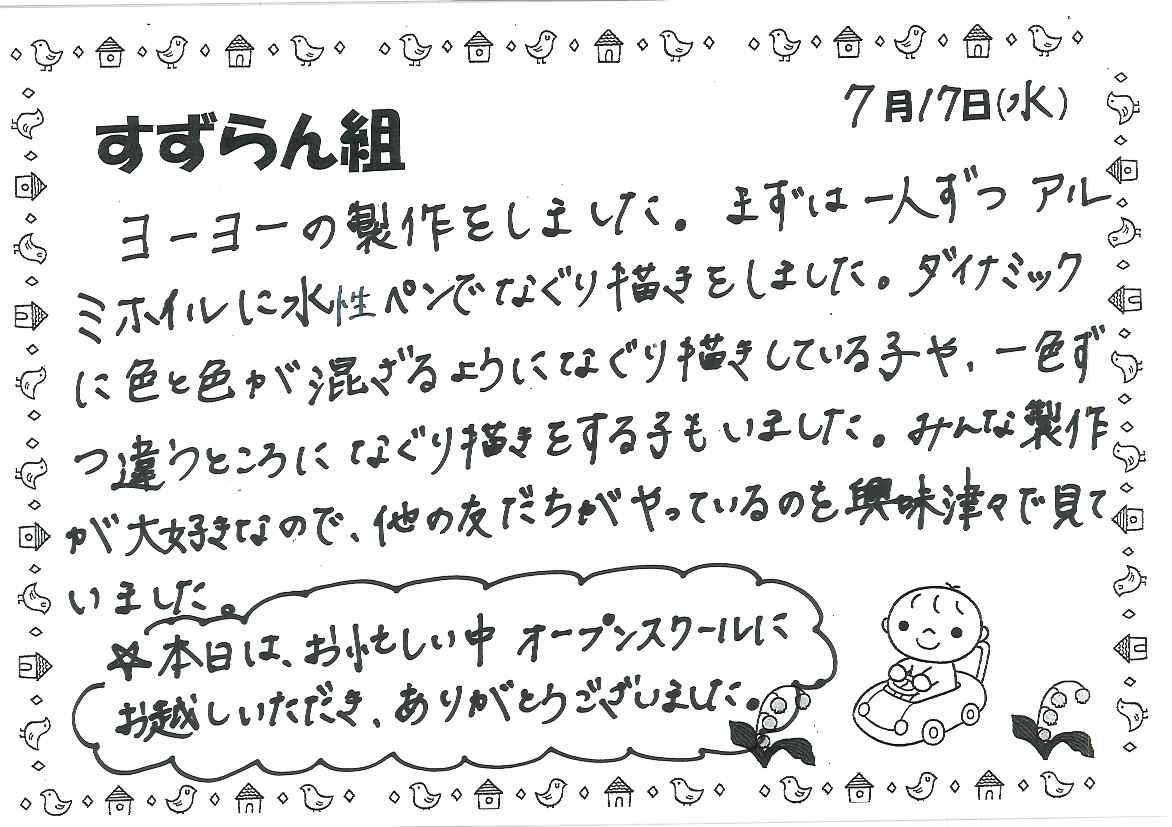 7月17日(水)
すずらん組
ヨーヨーの製作をしました。まずは一人ずつアル
ミホイルに水性ペンでなぐり描きをしました。ダイナミック
に色と色が混ざるようになぐり描きしている子や、一色ず
つ違うところになぐり描きをする子もいました。みんな製作
が大好きなので、他の友だちがやっているのを興味津々で見て
いました。
☆本日は、お忙しい中 オープンスクールに
お越しいただき、ありがとうございました。